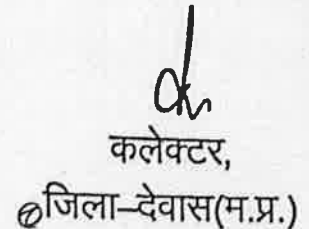 कलेक्टर,
जिला–देवास(म.प्र.)